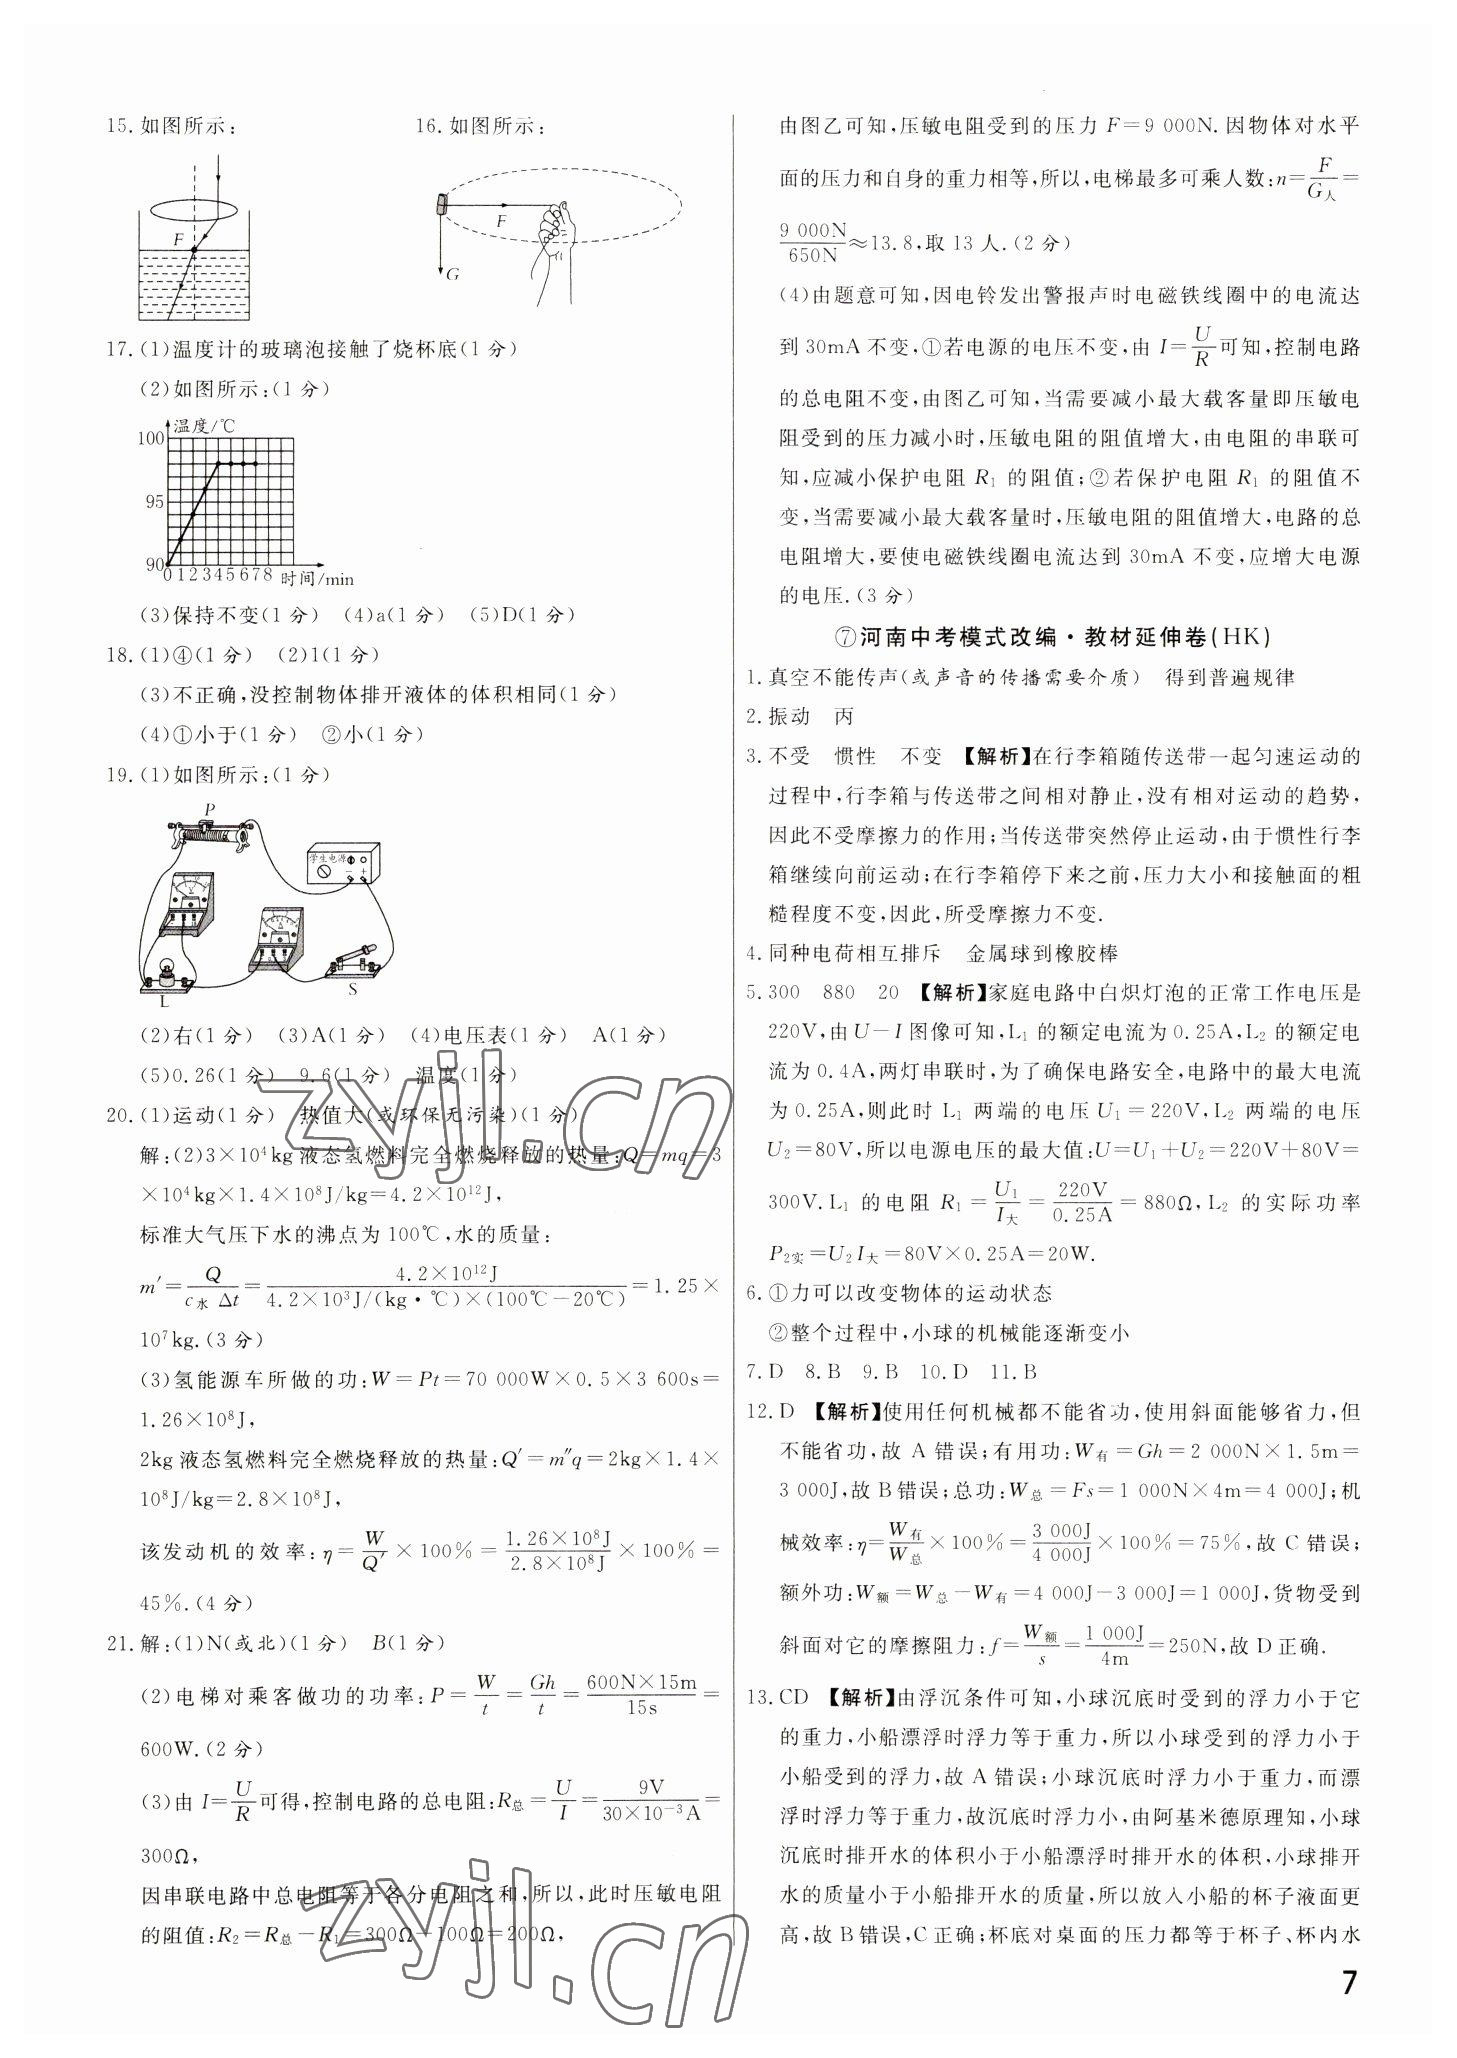 15.如图所示:
16.如图所示:
F
F
G
17.(1)温度计的玻璃泡接触了烧杯底(1分)
(2)如图所示:(1分)
温度/℃
100
95
90
0 1 2 3 4 5 6 7 8 时间/min
(3)保持不变(1分) (4)a(1分) (5)D(1分)
18.(1)④(1分) (2)1(1分)
(3)不正确,没控制物体排开液体的体积相同(1分)
(4)①小于(1分) ②小(1分)
19.(1)如图所示:(1分)
P
学生电源
L
S
(2)右(1分) (3)A(1分) (4)电压表(1分) A(1分)
(5)0.26(1分) 9.6(1分) 温度(1分)
20.(1)运动(1分) 热值大(或环保无污染)(1分)
解:(2)3×10⁴kg液态氢燃料完全燃烧释放的热量:Q=mq=3
×10⁴kg×1.4×10⁸J/kg=4.2×10¹²J,
标准大气压下水的沸点为100℃,水的质量:
m′=Q/(c水 Δt)=4.2×10¹²J/(4.2×10³J/(kg·℃)×(100℃-20℃))=1.25×
10⁷kg.(3分)
(3)氢能源车所做的功:W=Pt=70 000W×0.5×3 600s=
1.26×10⁸J,
2kg液态氢燃料完全燃烧释放的热量:Q′=m″q=2kg×1.4×
10⁸J/kg=2.8×10⁸J,
该发动机的效率:η=W/Q′×100%=1.26×10⁸J/2.8×10⁸J×100%=
45%.(4分)
21.解:(1)N(或北)(1分) B(1分)
(2)电梯对乘客做功的功率:P=W/t=Gh/t=600N×15m/15s=
600W.(2分)
(3)由I=U/R可得,控制电路的总电阻:R总=U/I=9V/30×10⁻³A=
300Ω,
因串联电路中总电阻等于各分电阻之和,所以,此时压敏电阻
的阻值:R₂=R总-R₁=300Ω-100Ω=200Ω,
由图乙可知,压敏电阻受到的压力F=9 000N.因物体对水平
面的压力和自身的重力相等,所以,电梯最多可乘人数:n=F/G人=
9 000N/650N≈13.8,取13人.(2分)
(4)由题意可知,因电铃发出警报声时电磁铁线圈中的电流达
到30mA不变,①若电源的电压不变,由I=U/R可知,控制电路
的总电阻不变,由图乙可知,当需要减小最大载客量即压敏电
阻受到的压力减小时,压敏电阻的阻值增大,由电阻的串联可
知,应减小保护电阻R₁的阻值;②若保护电阻R₁的阻值不
变,当需要减小最大载客量时,压敏电阻的阻值增大,电路的总
电阻增大,要使电磁铁线圈电流达到30mA不变,应增大电源
的电压.(3分)
⑦河南中考模式改编·教材延伸卷(HK)
1.真空不能传声(或声音的传播需要介质) 得到普遍规律
2.振动 丙
3.不受 惯性 不变 【解析】在行李箱随传送带一起匀速运动的
过程中,行李箱与传送带之间相对静止,没有相对运动的趋势,
因此不受摩擦力的作用;当传送带突然停止运动,由于惯性行李
箱继续向前运动;在行李箱停下来之前,压力大小和接触面的粗
糙程度不变,因此,所受摩擦力不变.
4.同种电荷相互排斥 金属球到橡胶棒
5.300 880 20 【解析】家庭电路中白炽灯泡的正常工作电压是
220V,由U-I图像可知,L₁的额定电流为0.25A,L₂的额定电
流为0.4A,两灯串联时,为了确保电路安全,电路中的最大电流
为0.25A,则此时L₁两端的电压U₁=220V,L₂两端的电压
U₂=80V,所以电源电压的最大值:U=U₁+U₂=220V+80V=
300V.L₁的电阻R₁=U₁/I大=220V/0.25A=880Ω,L₂的实际功率
P₂实=U₂I大=80V×0.25A=20W.
6.①力可以改变物体的运动状态
②整个过程中,小球的机械能逐渐变小
7.D 8.B 9.B 10.D 11.B
12.D 【解析】使用任何机械都不能省功,使用斜面能够省力,但
不能省功,故A错误;有用功:W有=Gh=2 000N×1.5m=
3 000J,故B错误;总功:W总=Fs=1 000N×4m=4 000J;机
械效率:η=W有/W总×100%=3 000J/4 000J×100%=75%,故C错误;
额外功:W额=W总-W有=4 000J-3 000J=1 000J,货物受到
斜面对它的摩擦阻力:f=W额/s=1 000J/4m=250N,故D正确.
13.CD 【解析】由浮沉条件可知,小球沉底时受到的浮力小于它
的重力,小船漂浮时浮力等于重力,所以小球受到的浮力小于
小船受到的浮力,故A错误;小球沉底时浮力小于重力,而漂
浮时浮力等于重力,故沉底时浮力小,由阿基米德原理知,小球
沉底时排开水的体积小于小船漂浮时排开水的体积,小球排开
水的质量小于小船排开水的质量,所以放入小船的杯子液面更
高,故B错误,C正确;杯底对桌面的压力都等于杯子、杯内水
7
zyjl.cn
zyjl.cn